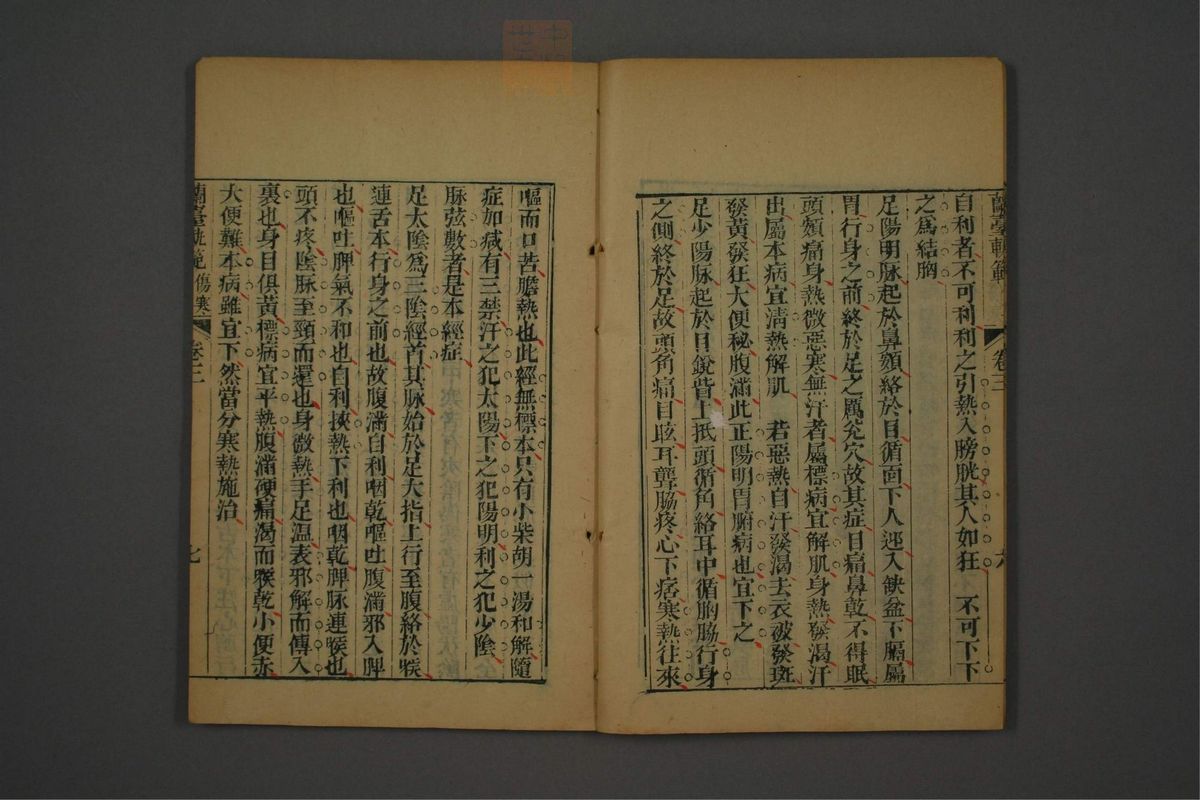 蘭臺軌範
卷三
六
自利者不可利利之引熱入膀胱其人如狂　不可下下
之爲結胸
足陽明脉起於鼻頞絡於目循面下人迎入缺盆下膈屬
胃行身之前終於足之厲兌穴故其症目痛鼻乾不得眠
頭頞痛身熱微惡寒無汗者屬標病宜解肌身熱發渴汗
出屬本病宜淸熱解肌　若惡熱自汗發渴去衣被發斑
發黃發狂大便秘腹滿此正陽明胃腑病也宜下之
足少陽脉起於目銳眥上抵頭循角絡耳中循胸脇行身
之側終於足故頭角痛目眩耳聾脇疼心下痞寒熱往來
嘔而口苦膽熱也此經無標本只有小柴胡一湯和解隨
症加减有三禁汗之犯太陽下之犯陽明利之犯少陰
脉弦數者是本經症
足太陰爲三陰經首其脉始於足大指上行至腹絡於喉
連舌本行身之前也故腹滿自利咽乾嘔吐腹滿邪入脾
也嘔吐脾氣不和也自利挾熱下利也咽乾脾脉連喉也
頭不疼陰脉至頸而還也身微熱手足溫表邪解而傳入
裏也身目俱黃標病宜平熱腹滿硬痛渴而喉乾小便赤
大便難本病雖宜下然當分寒熱施治
蘭臺軌範
傷寒
卷三
七